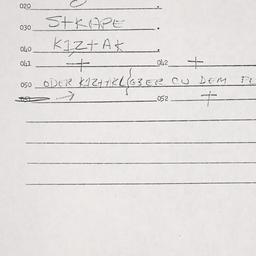 020
030 STRAPE
040 KIZTAK
041 + 042 +
050 ODER KIZTAKL GBER CU DEM
→ 052 +